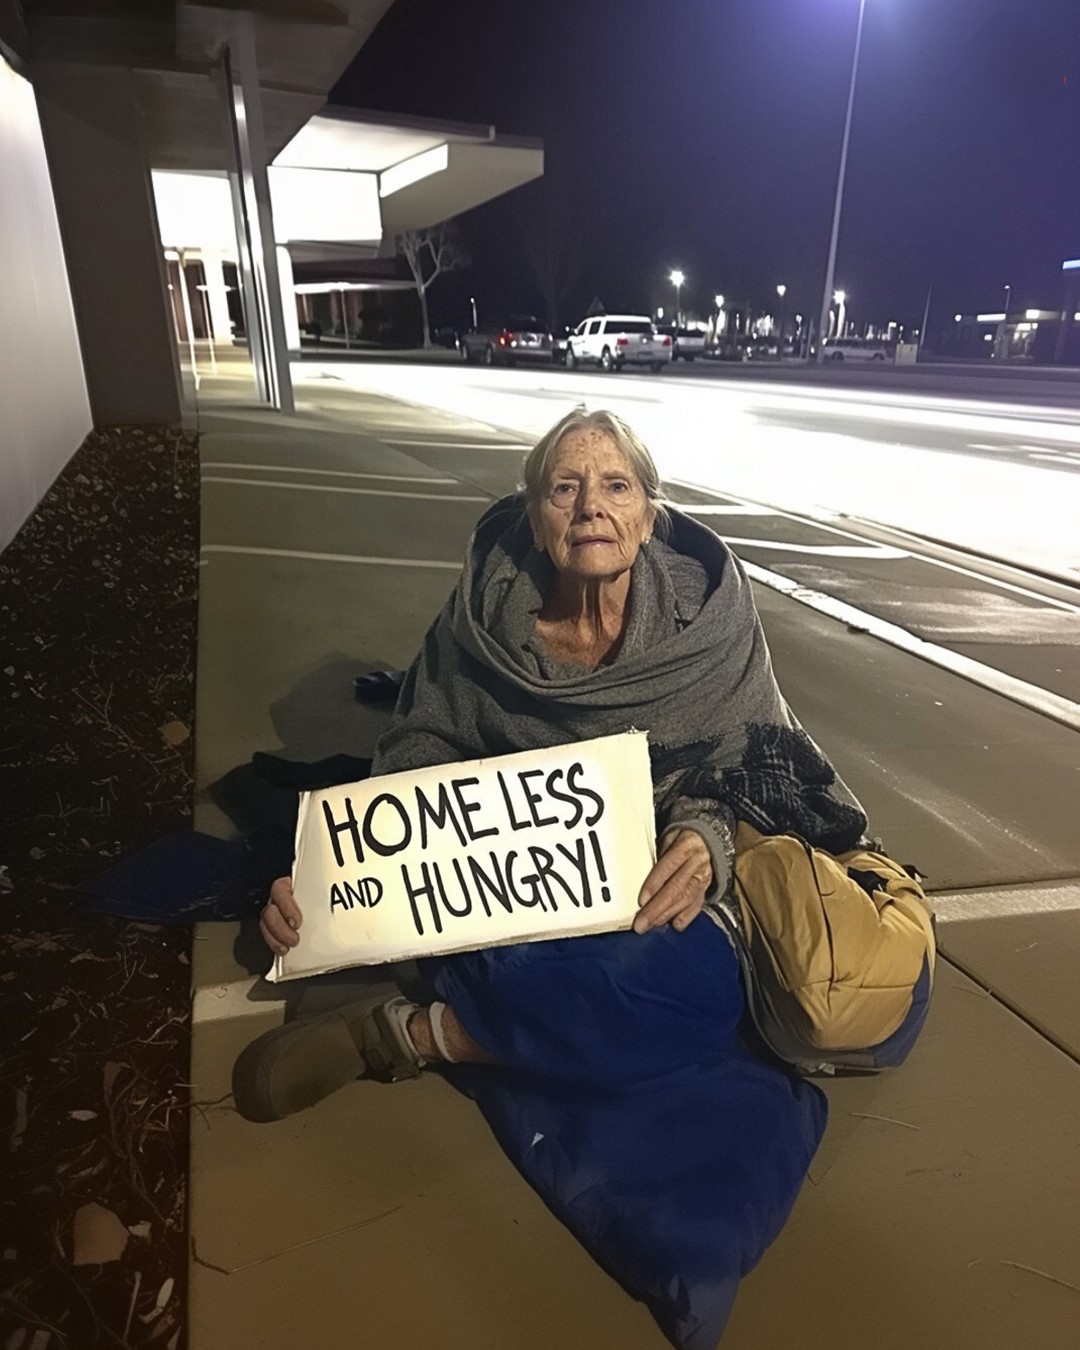 HOMELESS
AND HUNGRY!